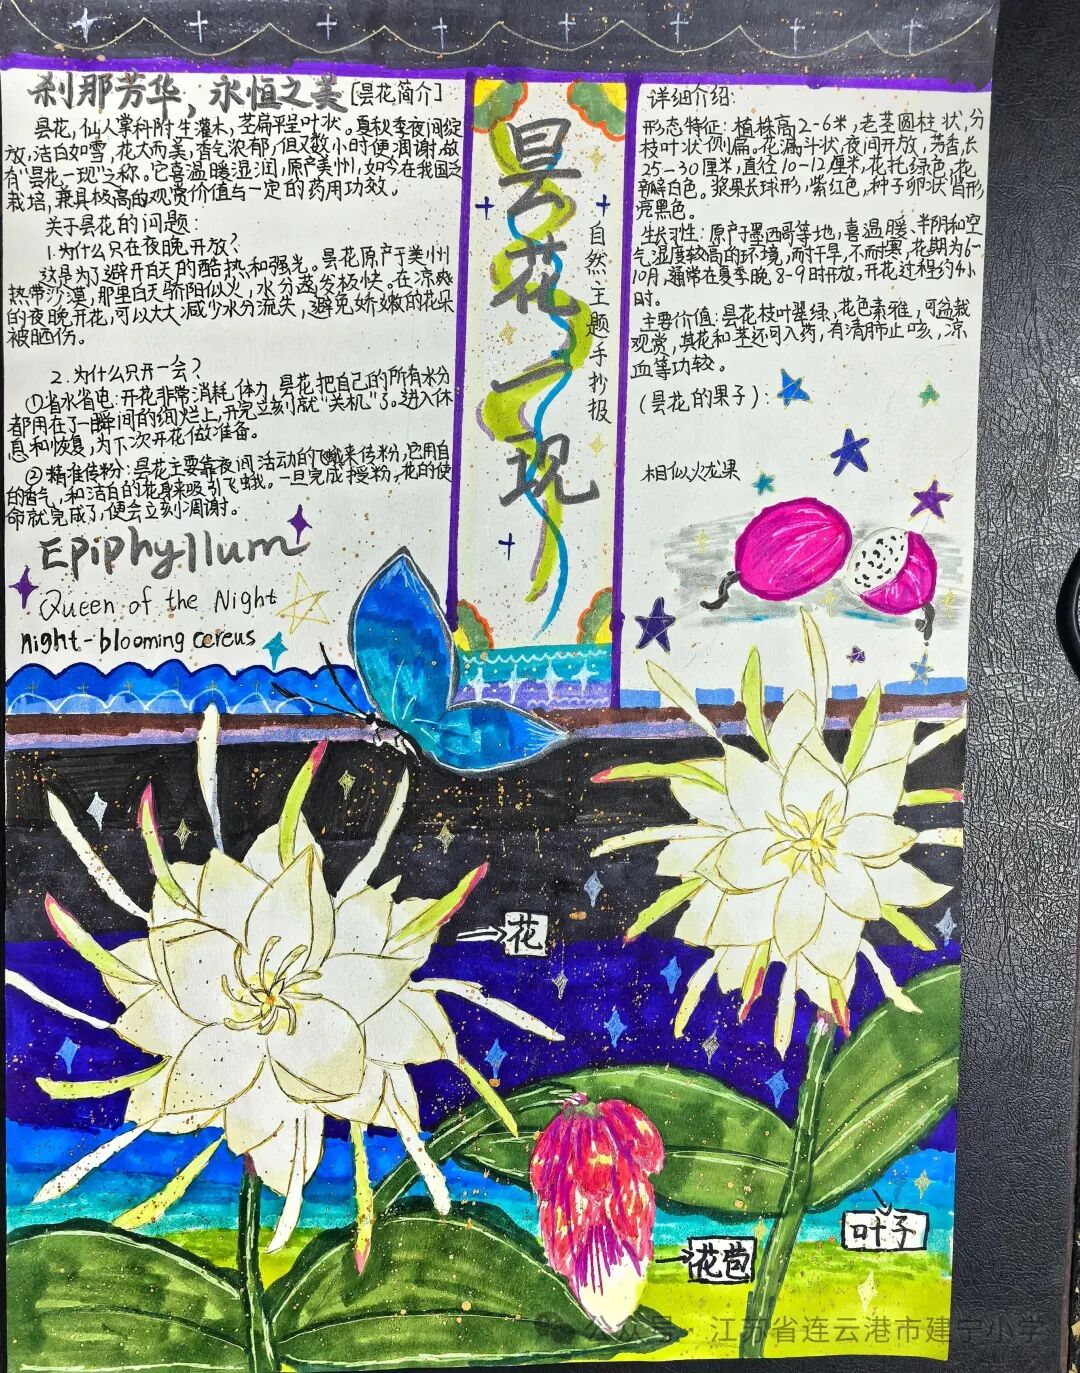 刹那芳华，永恒之美[昙花简介]
昙花，仙人掌科附生灌木，茎扁平呈叶状。夏秋季夜间绽
放，洁白如雪，花大而美，香气浓郁，但仅数小时便凋谢，故
有“昙花一现”之称。它喜温暖湿润，原产美洲，如今在我国之
栽培，兼具极高的观赏价值与一定的药用功效。
关于昙花的问题：
1.为什么只在夜晚开放？
这是为了避开白天的酷热和强光。昙花原产于美州
热带沙漠，那里白天骄阳似火，水分蒸发极快。在凉爽
的夜晚开花，可以大大减少水分流失，避免娇嫩的花朵
被晒伤。
2.为什么只开一会？
①省水省电：开花非常消耗体力，昙花把自己的所有水分
都用在了一瞬间的绚烂上，开完立刻就“关机”了。进入休
息和恢复，为下次开花做准备。
②精准传粉：昙花主要靠夜间活动的飞蛾来传粉，它用自
的香气，和洁白的花身来吸引飞蛾。一旦完成授粉，花的使
命就完成了，便会立刻凋谢。
Epiphyllum
Queen of the Night
night-blooming cereus
昙花一现
自然主题手抄报
详细介绍：
形态特征：植株高2-6米，老茎圆柱状，分
枝叶状侧扁。花漏斗状，夜间开放，芳香，长
25-30厘米，直径10-12厘米，花托绿色，花
瓣白色。浆果长球形，紫红色，种子卵状肾形
亮黑色。
生长习性：原产于墨西哥等地，喜温暖、半阴和空
气湿度较高的环境，耐干旱，不耐寒，花期为6-
10月，通常在夏季晚8-9时开放。开花过程约4小
时。
主要价值：昙花枝叶翠绿，花色素雅，可盆栽
观赏，其花和茎还可入药，有清肺止咳，凉
血等功较。
(昙花的果子)：
相似火龙果
花
花苞
叶子
公众号·江苏省连云港市建宁小学